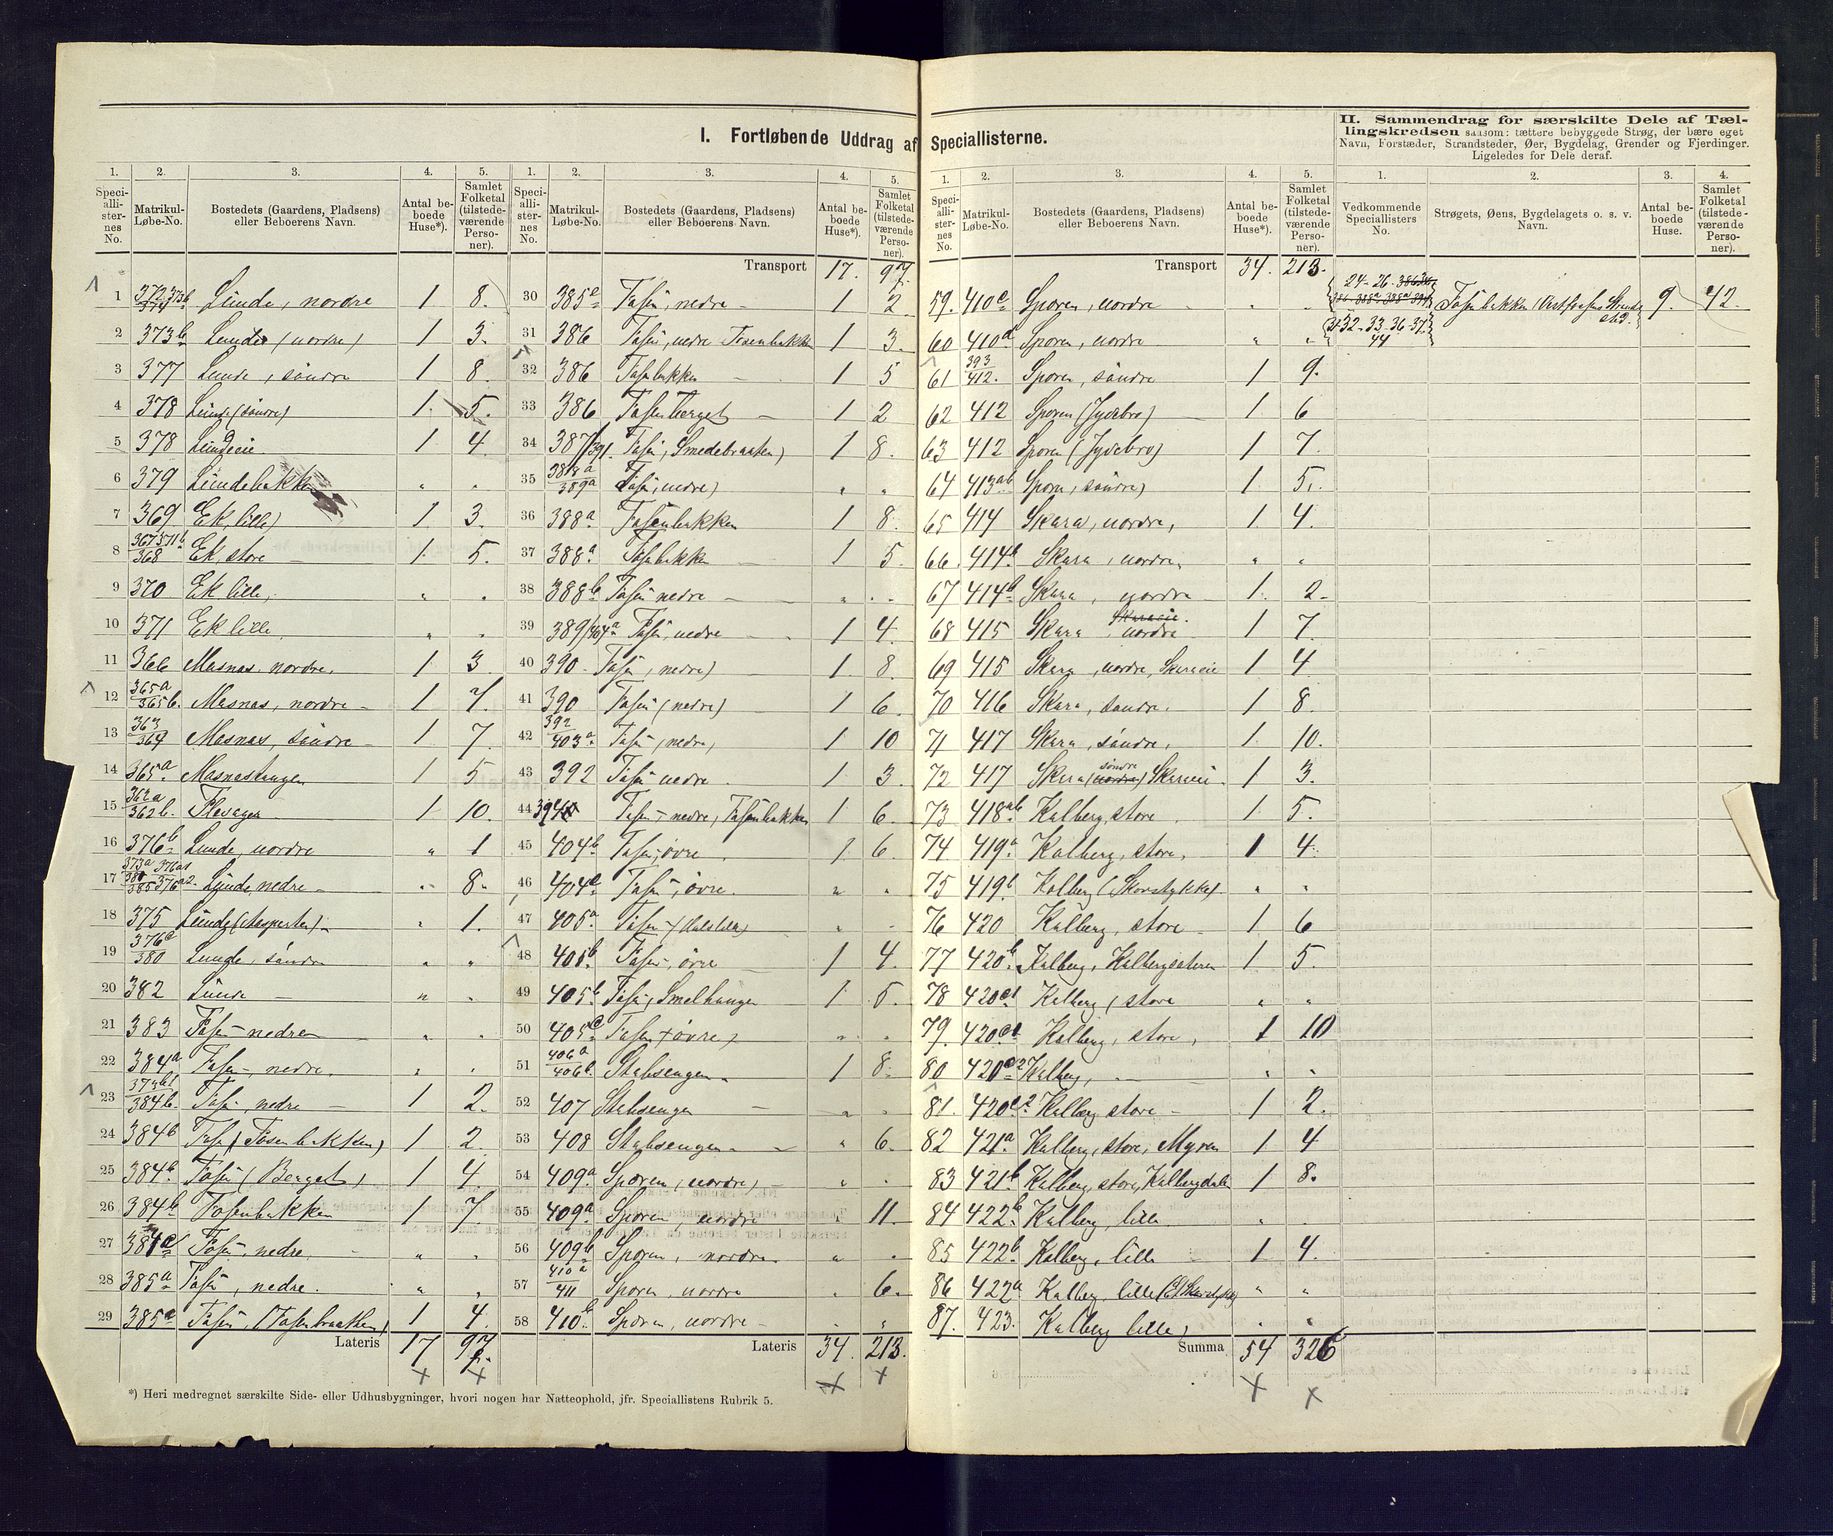 I. Fortløbende Uddrag af Speciallisterne.
II. Sammendrag for særskilte Dele af Tællingskredsen saasom: tættere bebyggede Strøg, der bære eget
Navn, Forstæder, Strandsteder, Øer, Bygdelag, Grender og Fjerdinger.
Ligeledes for Dele deraf.
1. 2. 3. 4. 5.
Speciallisternes No. Matrikul-Løbe-No. Bostedets (Gaardens, Pladsens) eller Beboerens Navn. Antal beboede Huse*). Samlet Folketal (tilstedeværende Personer).
1 Lunde, nordre 1 8.
2 373b Lunde (nordre) 1 3.
3 377 Lunde, søndre 1 8.
4 378 Lunde (søndre) 1. 5.
5 378 Lundeeie 1 4.
6 379 Lundebakken " "
7 369 Ek, lille) 1 3.
8 368 Ek store 1. 5.
9 370 Ek lille, " "
10 371 Ek lille. " "
11 366 Masnas, nordre. 1 3
12 365a/365b. Masnas, nordre 1 7.
13 363/364 Masnas, søndre 1 7.
14 365a Masnastangen 1 5
15 362a/362b. Flevagen 1 10.
16 376b Lunde, nordre " 1
17 Lunde, nedre " 8.
18 375 Lunde " 1.
19 376c/380 Lunde, søndre " "
20 382 Lunde " "
21 383 Fosen nedre " "
22 384a Fosen, nedre. " "
23 373b1/384b. Fosen, nedre 1 2.
24 384b Fosen (Fosenbakken) 1 2.
25 384b Fosen (Berget) 1 4.
26 384b Fosenbakken 1 7
27 384c Fosen, nedre. " "
28 385a Fosen, nedre. " "
29 385c Fosen, (Fosenbraaten) 1 4.
Lateris 17 97
1. 2. 3. 4. 5.
Speciallisternes No. Matrikul-Løbe-No. Bostedets (Gaardens, Pladsens) eller Beboerens Navn. Antal beboede Huse*). Samlet Folketal (tilstedeværende Personer).
Transport 17. 97.
30 385c Fosen, nedre 1 2
31 386 Fosen, nedre Fosenbakken 1 3.
32 386 Fosenbakken 1 5
33 386 Fosen berget 1 2
34 387/391. Fosen, Smedebraaten) 1 8.
35 388a/389a Fosen, nedre) " "
36 388a Fosenbakken 1 8.
37 388a Fosenbakken 1 5.
38 388b Fosen nedre " "
39 389/404a Fosen, nedre 1 4.
40 390 Fosen, nedre) 1 8.
41 390 Fosen (nedre) 1 6.
42 392/403a Fosen, nedre, 1 10
43 392 Fosen nedre 1 3.
44 394 Fosen nedre, Fosenbakken 1 6.
45 404b Fosen, øvre. 1 6.
46 404c Fosen, øvre. " "
47 405a Fosen " "
48 405b Fosen, øvre 1 4.
49 405b Fosen, Smelhaugen 1 5.
50 405c Fosen, øvre) " "
51 406a/406b. Stabsengen. 1 8.
52 407 Stabsengen " "
53 408 Stabsengen " 6.
54 409a Sporen, nordre, " "
55 409a Sporen, nordre " 11.
56 409b Sporen, nordre. " "
57 410a/411 Sporen, nordre " 6.
58 410b Sporen, nordre " "
Lateris 34. 213.
1. 2. 3. 4. 5.
Speciallisternes No. Matrikul-Løbe-No. Bostedets (Gaardens, Pladsens) eller Beboerens Navn. Antal beboede Huse*). Samlet Folketal (tilstedeværende Personer).
Transport 34. 213.
59. 410c Sporen, nordre " "
60 410d Sporen, nordre " "
61 393/412. Sporen, søndre 1 9.
62 412 Sporen (Jydebro) 1 6
63 412 Sporen (Jydebro) 1 7.
64 413ab Sporen, søndre) 1 5.
65 414 Skara, nordre, 1 4.
66. 414b Skara, nordre. " "
67 414b Skara, nordre 1. 2.
68 415 Skara, Skaraeie. nordre 1 7.
69 415 Skara, nordre, Skaraeie 1 4.
70 416 Skara, søndre. 1 8.
71 417 Skara, søndre, 1. 10.
72 417 Skara (nordre) søndre Skaraeie 1 3.
73 418ab Kalberg, store 1 5.
74 419a Kalberg, store. 1 4.
75 419b Kalberg (Skovstykke) " "
76 420 Kalberg, store 1 6
77 420b Kalberg, Kalbergsæteren 1 5.
78 420c1 Kalberg, store " "
79. 420c1 Kalberg, store, 1 10
80 420c2 Kalberg, " "
81. 420c2 Kalberg store 1 2.
82 421a Kalberg, store, Myren 1 4
83 421b Kalberg, store, Kalbergdalen 1 8.
84 422b Kalberg, lille "
85 422b Kalberg, lille 1 4.
86 422a Kalberg, lille " "
87. 423. Kalberg lille, " "
Summa 54 326
1. 2. 3. 4.
Vedkommende Speciallisters No. Strøgets, Øens, Bygdelagets o. s. v. Navn. Antal beboede Huse. Samlet Folketal (tilstedeværende Personer).
24-26-
Fosenbakken 9. 42.
31-32-33-36-37.
44
*) Heri medregnet særskilte Side- eller Udhusbygninger, hvori nogen har Natteophold, jfr. Speciallistens Rubrik 5.